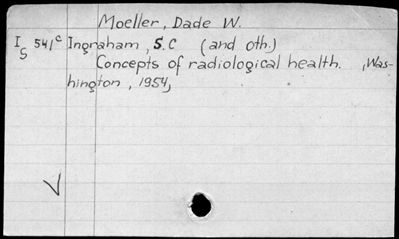 Moeller, Dade W.
I 541c Ingraham, S.C (and oth.)
S Concepts of radiological health. , Was-
hington, 1954,